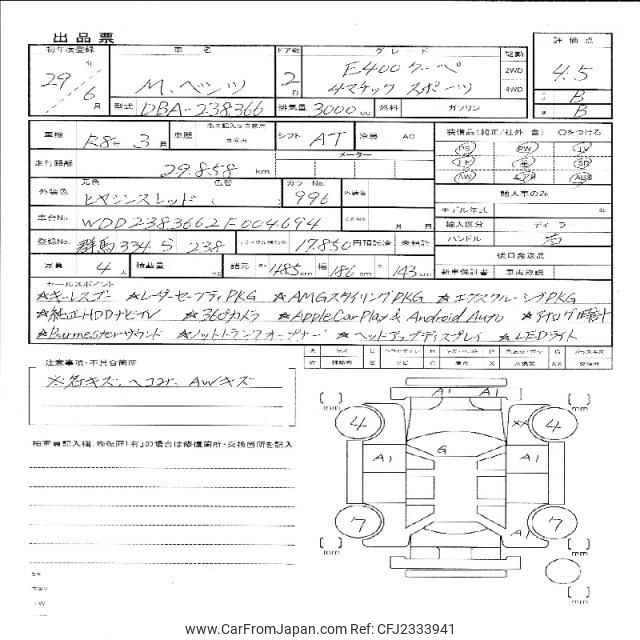 出品票
初年度登録 車名 ドア数 グレード 駆動 評価点
29年 6月 M.ベンツ 2D E400クーペ 4マチック スポーツ 2WD 4WD 4.5
B
B
型式 DBA-238366 排気量 3000 cc 燃料 ガソリン
車検 R8年 3月 車歴 シフト AT 冷房 AC 装備品(純正/社外 書) ○をつける
PS PW
走行距離 29.858 km メーター
AW ABS
外装色 元色 色替 カラーNo. 輸入車のみ
ヒヤシンスレッド ( ) 996
モデル年式 年
車台No. WDD2383662F004694 月 日 輸入区分 ディーラー
登録No. 群馬 334 ら 238 17.850 円預託済 未預託 ハンドル 右
後日発送品
定員 4人 積載量 KG 諸元 長 485cm 幅 186cm 高 143cm 新車保証書 車両取説
セールスポイント
☆キーレスゴー ☆レーダーセーフティPKG ☆AMGスタイリングPKG ☆エクスクルーシブPKG
☆純正HDDナビTV ☆360°カメラ ☆AppleCarPlay & Android Auto ☆アナログ時計
☆Burmesterサウンド ☆フットトランクオープナー ☆ヘッドアップディスプレイ ☆LEDライト
注意事項・不具合箇所
※各キズ、ヘコミ、AWキズ
検査員記入欄、修復歴「有」の場合は修復箇所・交換箇所を記入
A1 A1
4 XX 4
G
A1 A1
7 7
A1
mm mm
mm mm
mm
www.CarFromJapan.com - Photo ID: CFJ2333941